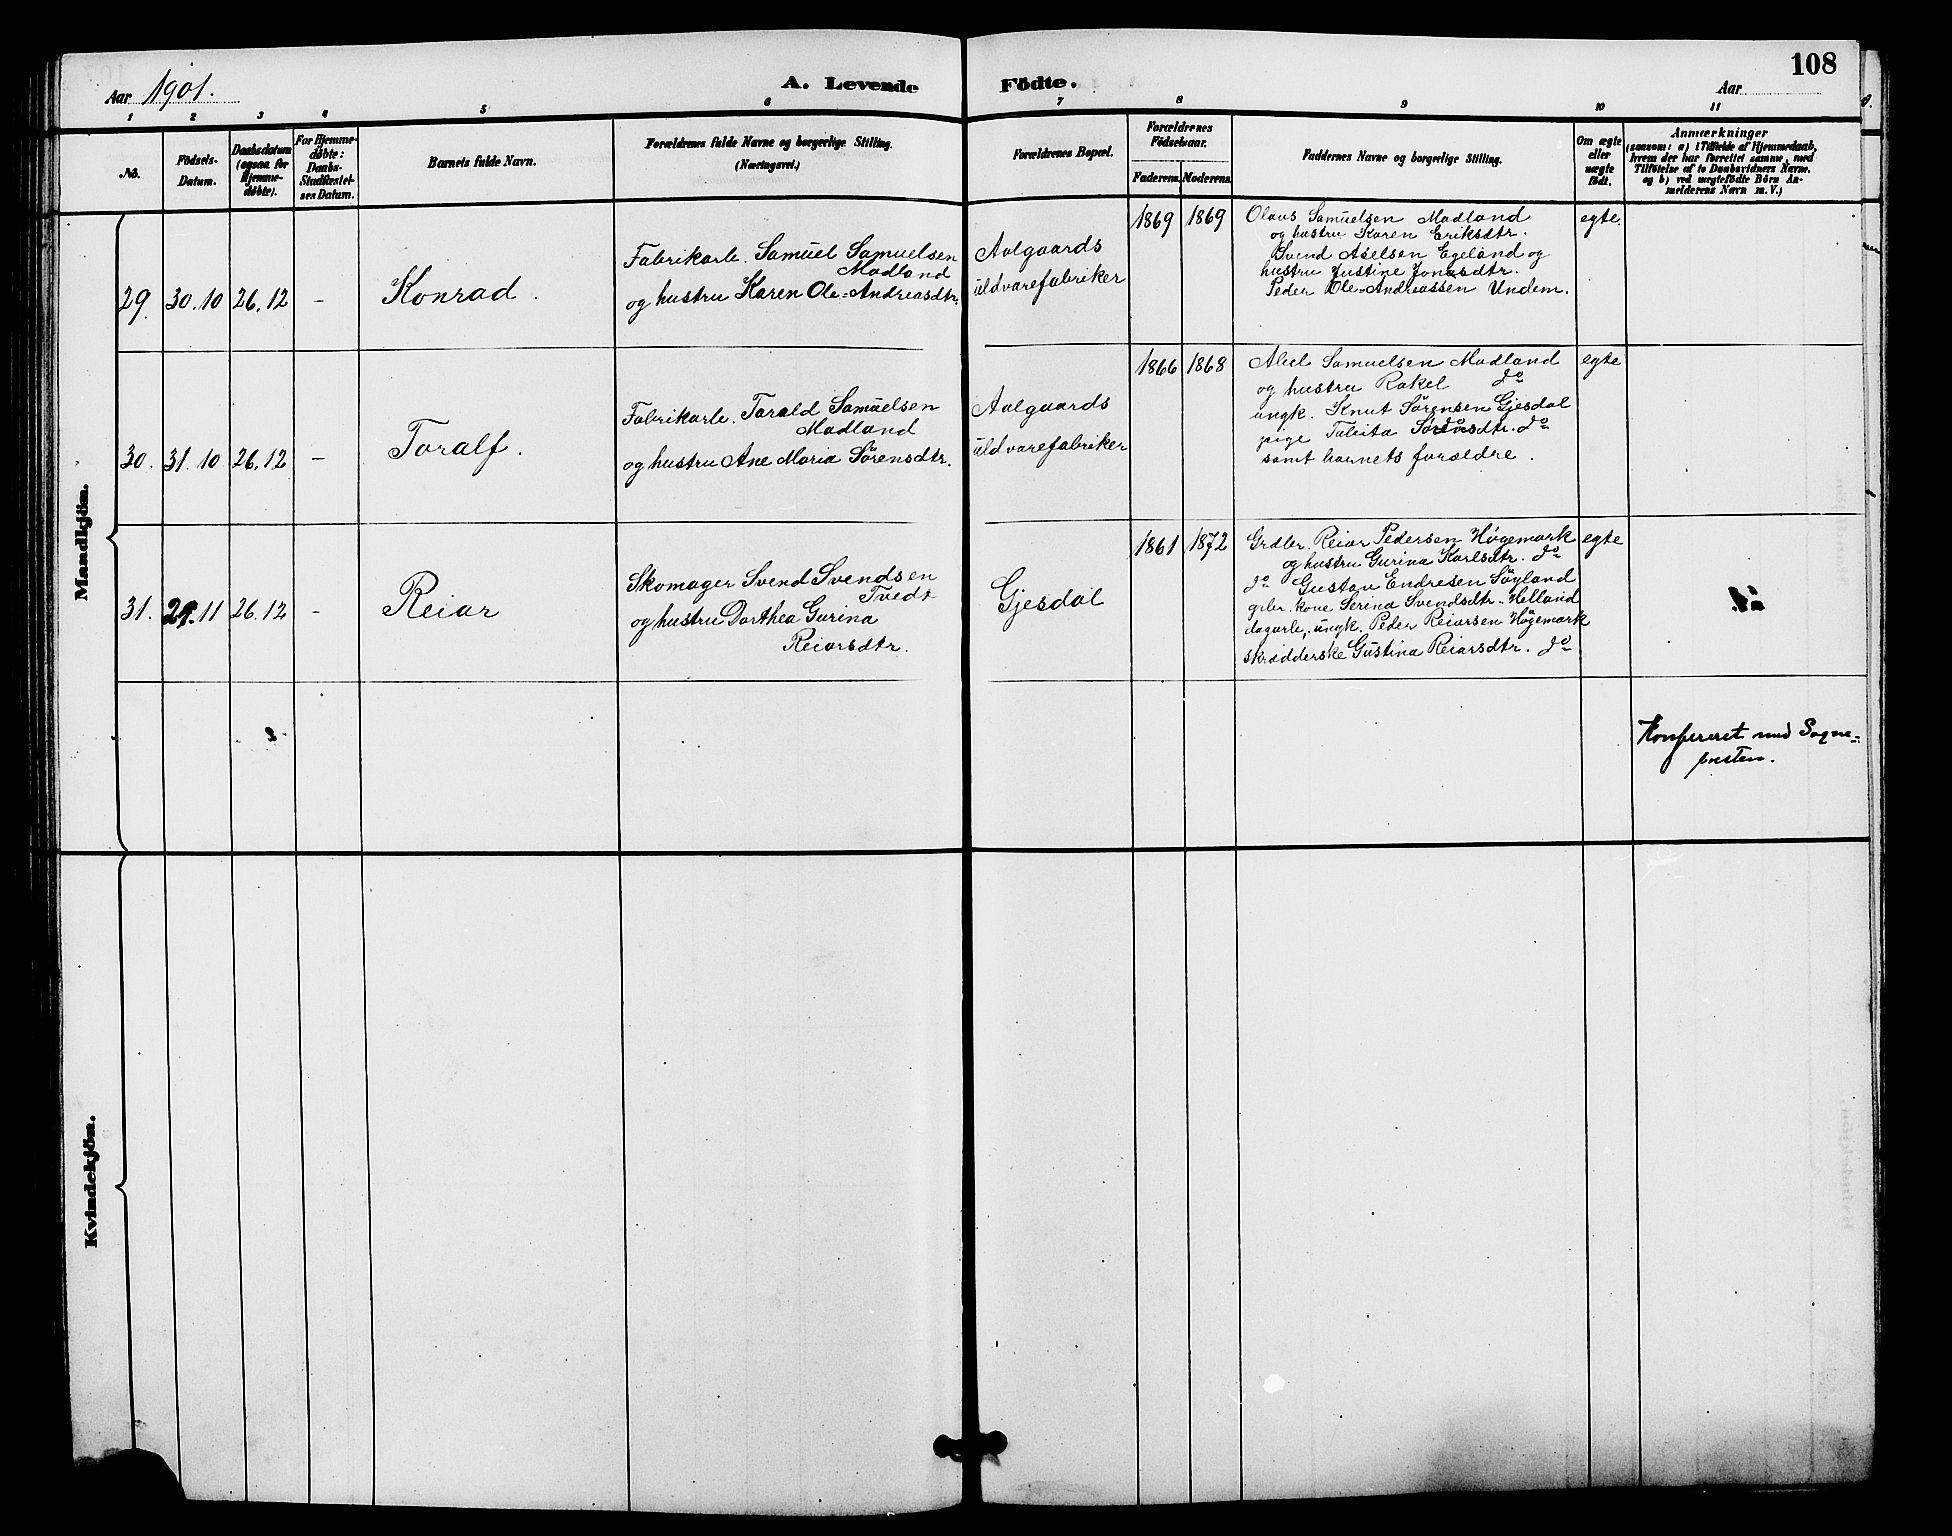 108
Aar 1901.
A. Levende Födte.
Aar
1 2 3 4 5 6 7 8 9 10 11
No.
Födsels-
Datum.
Daabsdatum
(ogsaa for
Hjemme-
døbte).
For Hjemme-
døbte:
Daabs-
Stadfæstel-
ses Datum.
Barnets fulde Navn.
Forældrenes fulde Navne og borgerlige Stilling.
(Næringsvei.)
Forældrenes Bopæl.
Forældrenes
Födselsaar.
Faderens. Moderens.
Faddernes Navne og borgerlige Stilling.
Om ægte
eller
uægte
födt.
Anmærkninger
(saasom: a) i Tilfælde af Hjemmedaab,
hvem der har forrettet samme, med
Tilföielse af to Daabsvidners Navne,
og b) ved uægtefödte Börn An-
melderens Navn m. V.)
Mandkjön.
29. 30.10 26.12 – Konrad.
Fabrikarb. Samuel Samuelsen
Madland
og hustru Karen Ole-Andreasdtr.
Aalgaards
uldvarefabriker
1869 1869
Olaus Samuelsen Madland
og hustru Karen Eriksdtr.
Svend Axelsen Egeland og
hustru Justine Jonasdtr.
Peder Ole-Andreassen Undem.
egte.
30. 31.10 26.12 – Toralf.
Fabrikarb. Torald Samuelsen
Madland
og hustru Ane Maria Sørensdtr.
Aalgaards
uldvarefabriker
1866 1868
Abel Samuelsen Madland
og hustru Rakel do
ungk. Knut Sørensen Gjesdal
pige Tabita Sørensdtr. do
samt barnets forældre.
egte
31. 29.11 26.12 – Reiar
Skomager Svend Svendsen
Tvedt
og hustru Dorthea Gurina
Reiarsdtr.
Gjesdal
1861 1872
Grdbr. Reiar Pedersen Høgemark
og hustru Gurina Karlsdtr. do
do Gustav Endresen Söyland
grbr. kone Serina Svendsdtr. Helland
dagarb., ungk. Peder Reiarsen Høgemark
skrædderske Gustina Reiarsdtr. do
egte
Konfereret med Sogne-
presten.
Kvindekjön.